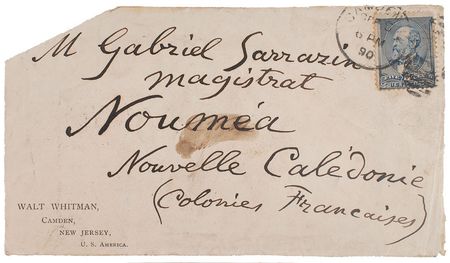 M Gabriel Sarrazin
magistrat
Nouméa
Nouvelle Calédonie
(Colonies Francaises)
WALT WHITMAN,
CAMDEN,
NEW JERSEY,
U. S. AMERICA.
6 PM
90